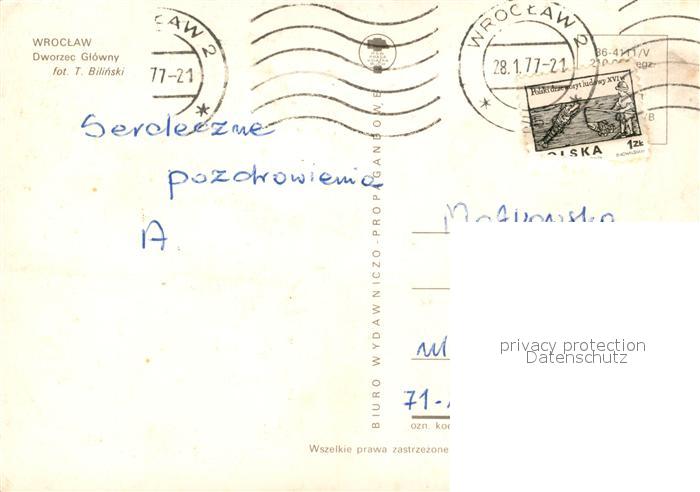 WROCŁAW
Dworzec Główny
fot. T. Biliński
WROCŁAW 2
28.1.77-21
CŁAW 2
77-21
86-4111/V
Polski drzeworyt ludowy XVI w.
POLSKA
1 ZŁ
Serdeczne
pozdrowienia
A.
BIURO WYDAWNICZO-PROPAGANDOWE
ul
71-
ozn. kod
Wszelkie prawa zastrzeżone
privacy protection
Datenschutz